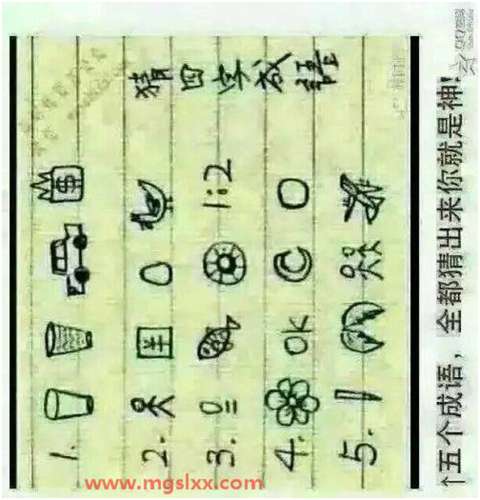 猜四字成語
1.
2.
3. 1:2
4. OK
5.
↑五个成语，全都猜出来你就是神!
www.mgslxx.com